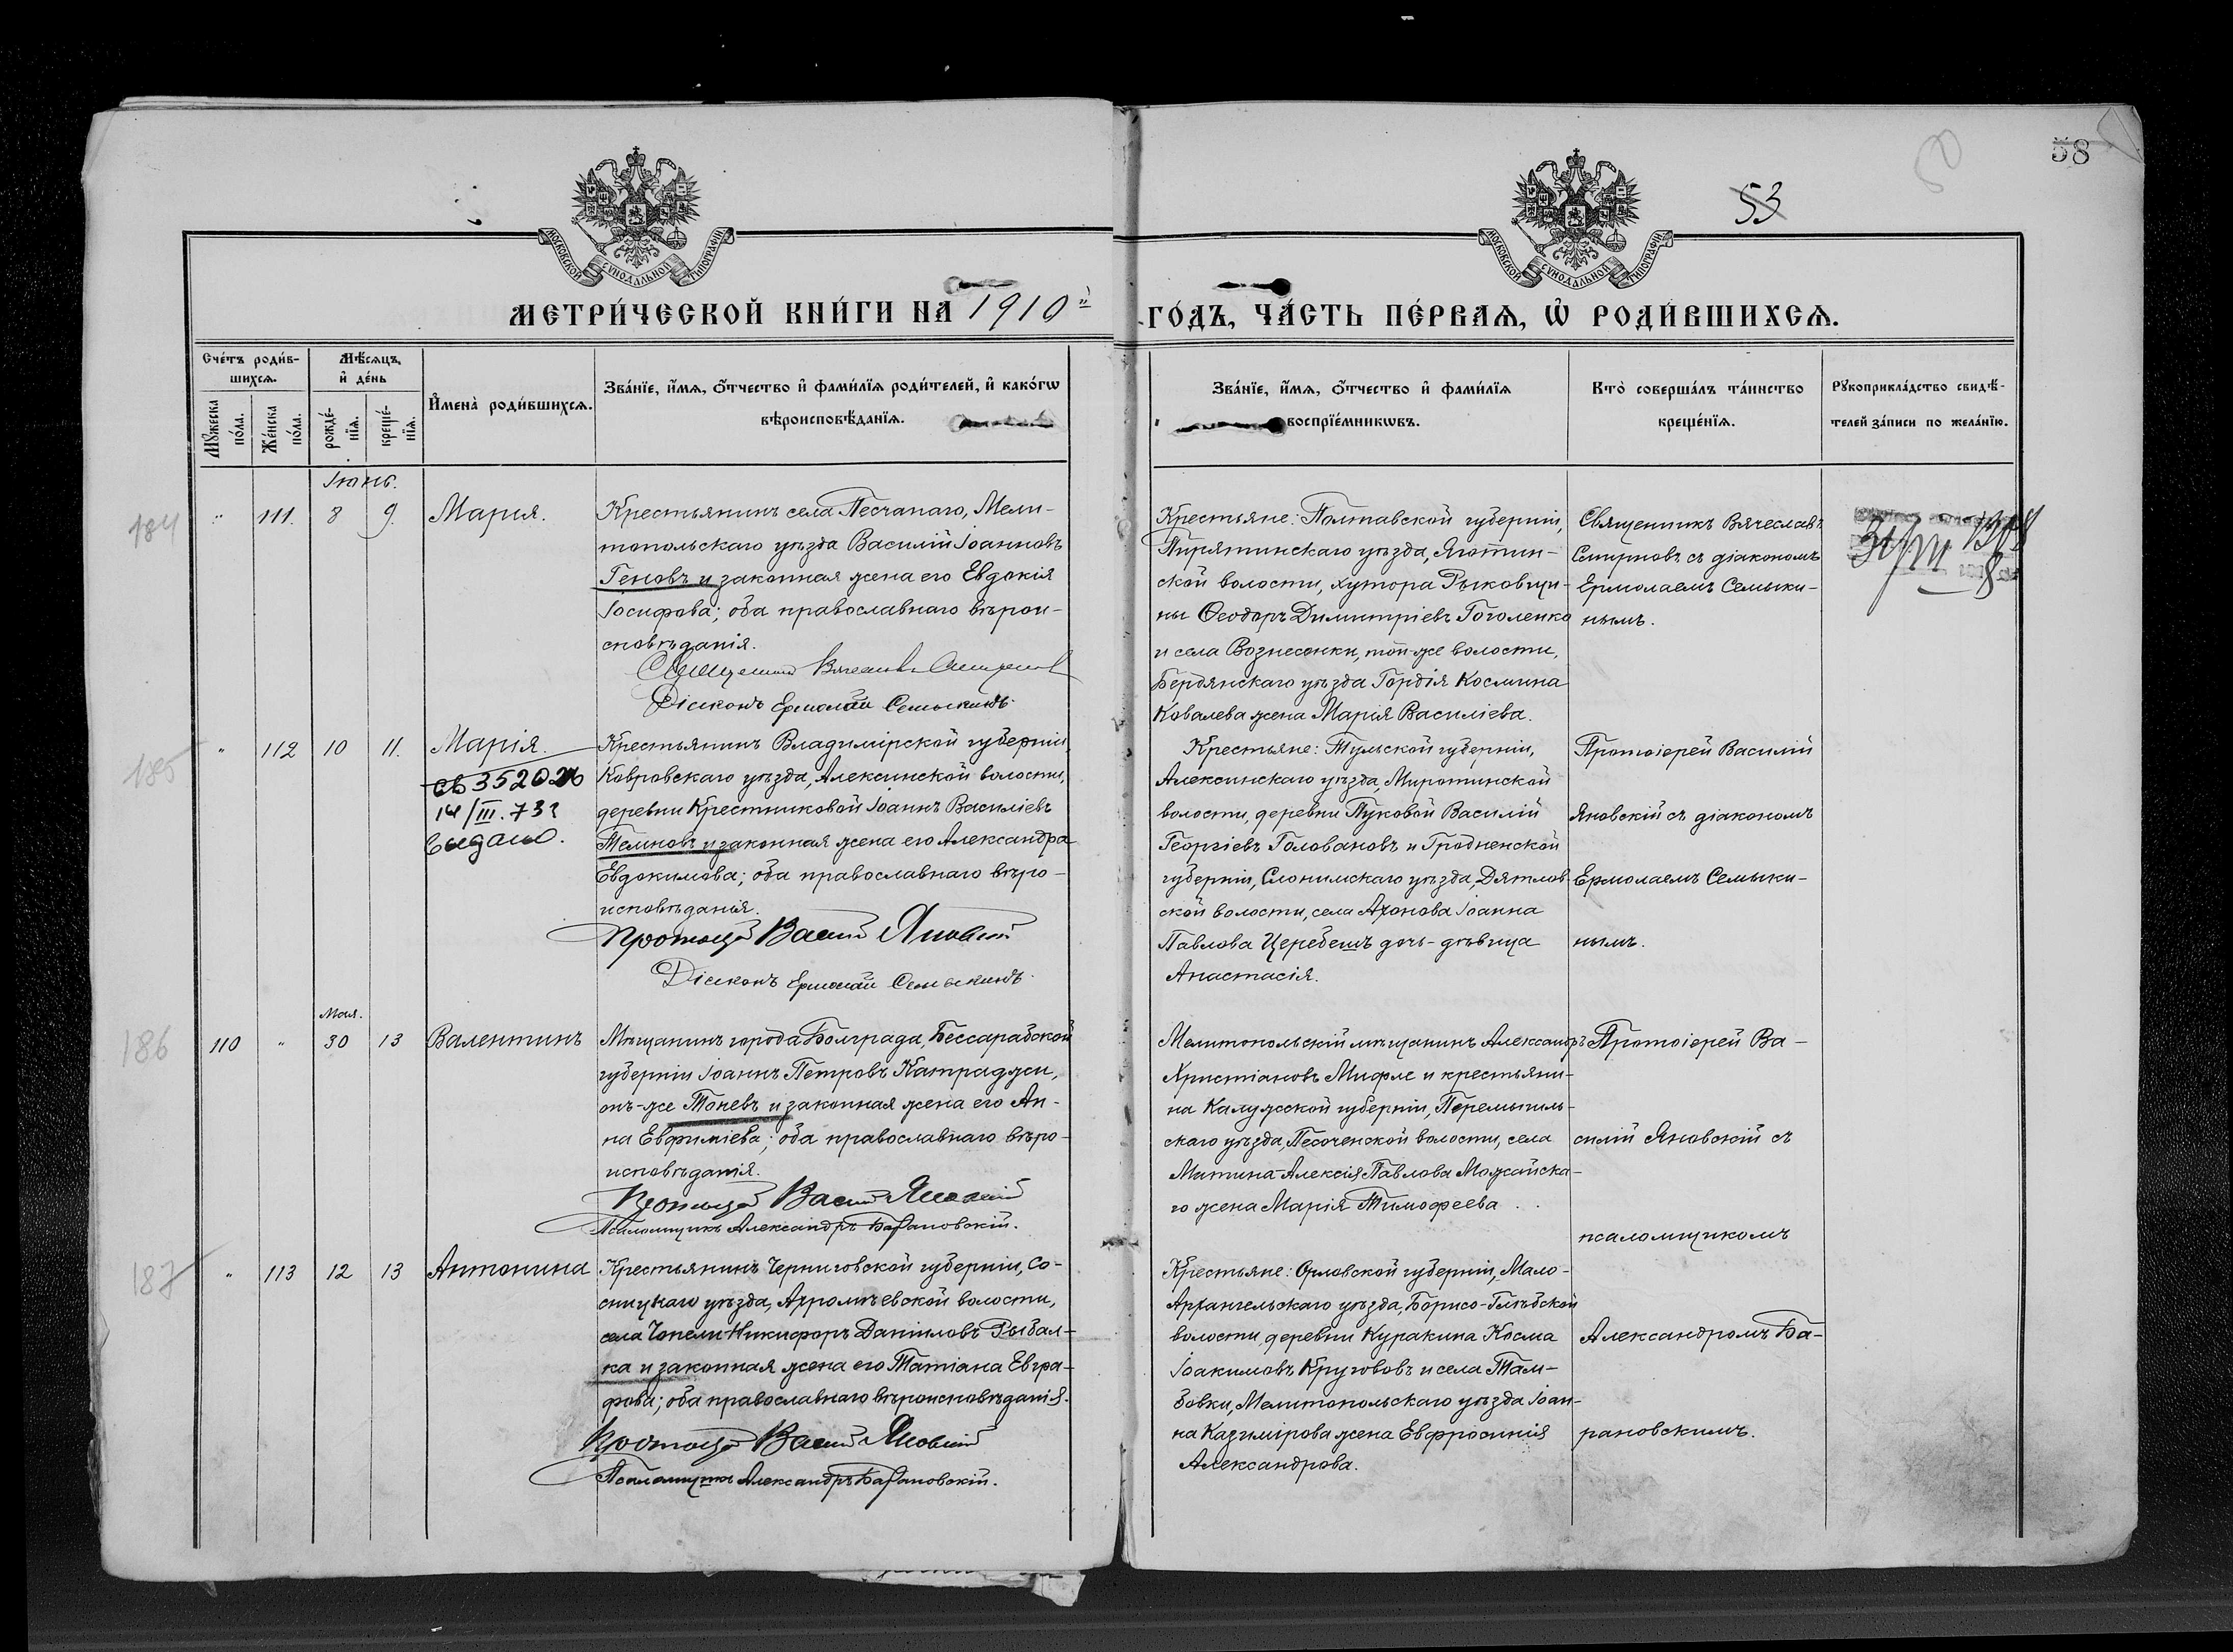 58
53
МОСКОВСКОЙ СѴНОДАЛЬНОЙ ТИПОГРАФІИ
МОСКОВСКОЙ СѴНОДАЛЬНОЙ ТИПОГРАФІИ
МЕТРИ́ЧЕСКОЙ КНИ́ГИ НА 1910й
ГО́ДЪ, ЧА́СТЬ ПЕ́РВАѦ, Ѡ҆ РОДИ́ВШИХСѦ.
Сче́тъ роди́в-
шихсѧ.
Мꙋ́жеска по́ла.
Же́нска по́ла.
Мѣ́сѧцъ, и҆ де́нь
рожде́-нїѧ.
креще́-нїѧ.
И҆мена̀ роди́вшихсѧ.
Зва́нїе, и҆́мѧ, ѻ҆́тчество и҆ фами́лїѧ роди́телей, и҆ како́гѡ
вѣроисповѣ́данїѧ.
Зва́нїе, и҆́мѧ, ѻ҆́тчество и҆ фами́лїѧ
воспрїе́мникѡвъ.
Кто̀ соверша́лъ та́инство
креще́нїѧ.
Рꙋкоприкла́дство свидѣ́-
телей за́писи по жела́нїю.
Іюнь.
184
" 111. 8 9. Мария.
Крестьянинъ села Песчанаго, Мели-
топольскаго уѣзда Василій Іоанновъ
Геновъ и законная жена его Евдокія
Іосифова; оба православнаго вѣрои-
сповѣданія.
Священникъ Вячеславъ Смирновъ
Діаконъ Ермолай Семыкинъ.
Крестьяне: Полтавской губерніи,
Пирятинскаго уѣзда, Яготин-
ской волости, хутора Рыковщи-
ны Ѳеодоръ Димитріевъ Гоголенко
и села Вознесенки, той-же волости,
Бердянскаго уѣзда Гордія Космина
Ковалева жена Марія Василіева.
Священникъ Вячеславъ
Смирновъ съ діакономъ
Ермолаемъ Семыки-
нымъ.
185
" 112 10 11. Марія.
14/III.
Выдано.
Крестьянинъ Владимірской губерніи,
Ковровскаго уѣзда, Алексинской волости,
деревни Крестниковой Іоаннъ Василіевъ
Темновъ и законная жена его Александра
Евдокимова; оба православнаго вѣро-
исповѣданія.
Протоіерей Василій Яновскій
Діаконъ Ермолай Семыкинъ.
Крестьяне: Тульской губерніи,
Алексинскаго уѣзда, Миротинской
волости, деревни Пуковой Василій
Георгіевъ Головановъ и Гродненской
губерніи, Слонимскаго уѣзда, Дятлов-
ской волости, села Ахонова Іоанна
Павлова Церебешъ дочь-дѣвица
Анастасія.
Протоіерей Василій
Яновскій съ діакономъ
Ермолаемъ Семыки-
нымъ.
Мая.
186
110 " 30 13 Валентинъ
Мѣщанинъ города Болграда, Бессарабской
губерніи Іоаннъ Петровъ Катраджи,
онъ-же Тоневъ и законная жена его Ан-
на Евфиміева; оба православнаго вѣро-
исповѣданія.
Протоіерей Василій Яновскій
Псаломщикъ Александръ Барановскій.
Мелитопольскій мѣщанинъ Александръ
Христіановъ Мифле и крестьяни-
на Калужской губерніи, Перемышль-
скаго уѣзда, Песоченской волости, села
Митина Алексія Павлова Можайска-
го жена Марія Тимофеева
Протоіерей Ва-
силій Яновскій съ
псаломщикомъ
187
" 113 12 13 Антонина
Крестьянинъ Черниговской губерніи, Со-
сницкаго уѣзда, Ахромѣевской волости,
села Чопели Никифоръ Даніиловъ Рыбал-
ка и законная жена его Татіана Евгра-
фова; оба православнаго вѣроисповѣданія.
Протоіерей Василій Яновскій
Псаломщикъ Александръ Барановскій.
Крестьяне: Орловской губерніи, Мало-
Архангельскаго уѣзда, Борисо-Глѣбской
волости, деревни Куракина Косма
Іоакимовъ Круговъ и села Там-
бовки, Мелитопольскаго уѣзда Іоан-
на Казимірова жена Евфросинія
Александрова.
Александромъ Ба-
рановскимъ.